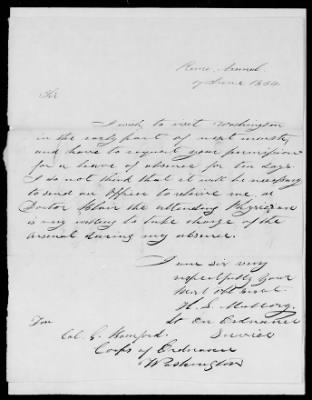 Rome Arsenal
9 June 1834
Sir
I wish to visit Washington
in the early part of next month,
and have to request your permission
for a leave of absence for ten days
I do not think that it will be necessary
to send an officer to relieve me, as
Doctor Blair the attending Physician
is very willing to take charge of the
arsenal during my absence.
I am sir very
respectfully your
most obt Servt
H. S. Mallory.
Lt On Ordnance
Service
Col. G. Bomford.
Corps of Ordnance
Washington